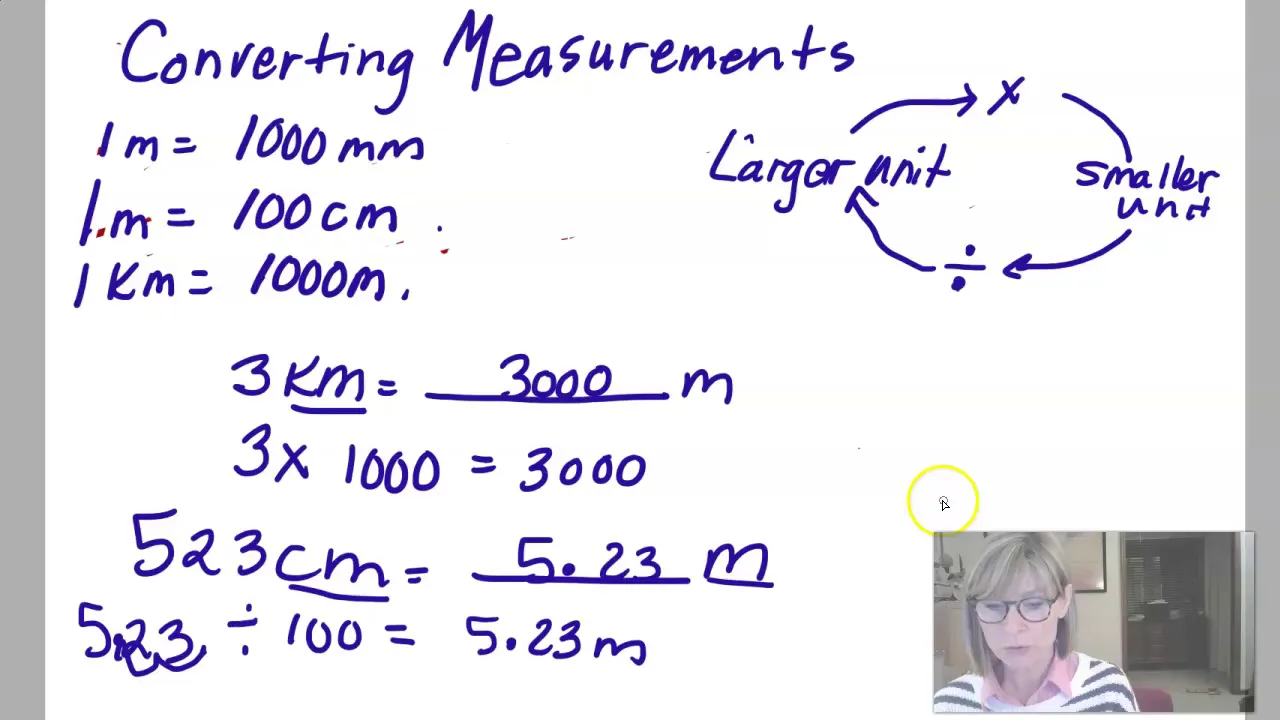 Converting Measurements
1 m = 1000 mm
1 m = 100 cm
1 Km = 1000 m.
Larger unit
x
smaller
unit
÷
3 Km = 3000 m
3 x 1000 = 3000
523 cm = 5.23 m
5.23. ÷ 100 = 5.23 m